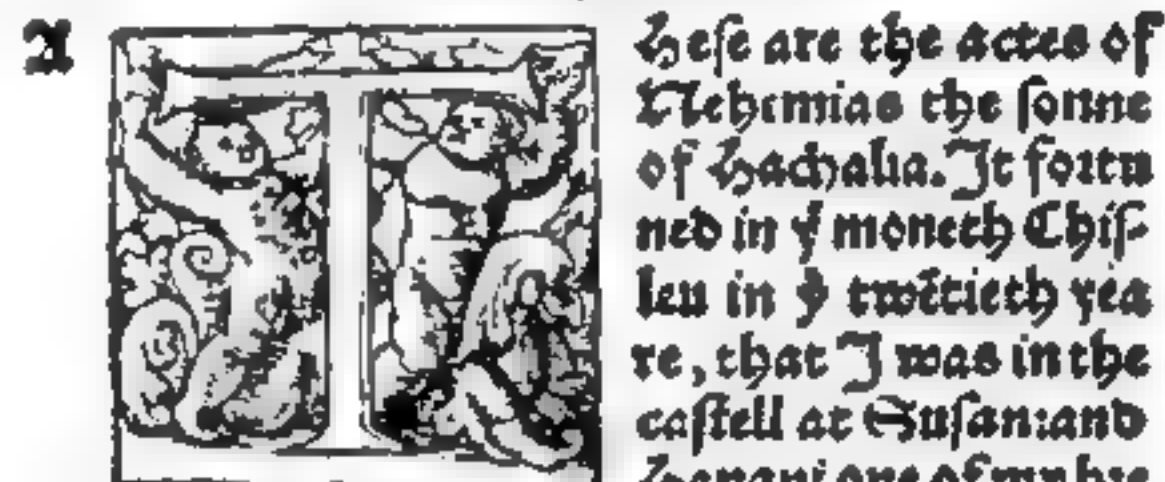 A
THese are the actes of
Nehemias the sonne
of Hachalia. It fortu
ned in yͤ moneth Chis-
leu in yͤ twẽtieth yea
re, that I was in the
castell at Susan: and
Hanani one of my bre